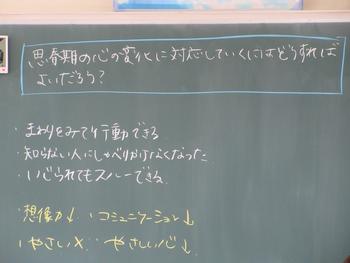 思春期の心の変化に対応していくにはどうすれば
よいだろう？
・まわりをみて行動できる
・知らない人にしゃべりかけなくなった
・いじられてもスルーできる
・想像力↓ ・コミュニケーション↓
・やさしい× ・やさしい心↓